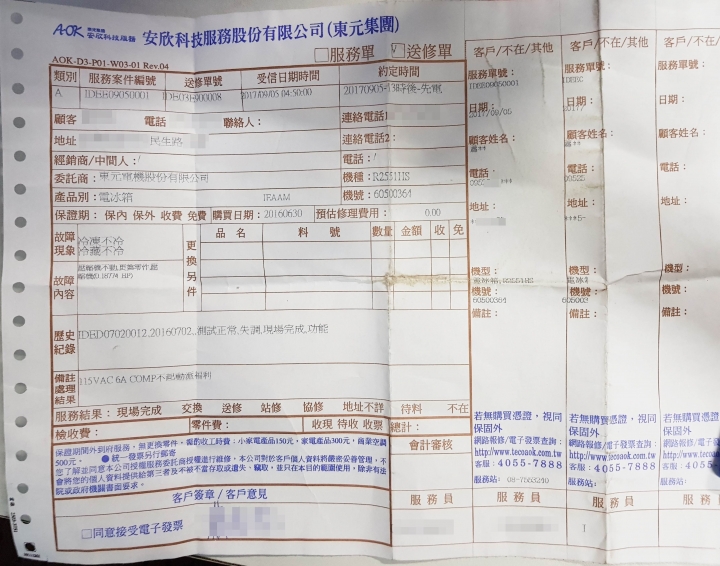 AOK 安欣科技服務 安欣科技服務股份有限公司(東元集團)
□服務單 ☑送修單
AOK-D3-P01-W03-01 Rev.04
類別 服務案件編號 送修單號 受信日期時間 約定時間
A IDEE09050001 IDE031-900008 2017/09/05 04:50:00 20170905-13時後-先電
顧客 電話 聯絡人: 連絡電話1
地址 民生路 連絡電話2:
經銷商/中間人:/ 電話:/
委託商:東元電機股份有限公司 機種:R2551HS
產品別:電冰箱 IEAAM 機號:60500364
保證期:保內 保外 收費 免費 購買日期:20160630 預估修理費用: 0.00
故障現象 冷凍不冷
冷藏不冷
更換另件 品名 料號 數量 金額 收 免
故障內容 壓縮機不動,更換零件,壓
縮機(0.18774 HP)
歷史紀錄 IDED07020012,20160702,,測試正常,失調,現場完成,功能
備註處理結果 115VAC 6A COMP不起動
服務結果: 現場完成 交換 送修 站修 協修 地址不詳 待料 不在
檢收費: 零件費: 收現 待收 收票 總計:
保證期間外到府服務,無更換零件,需酌收工時費:小家電產品150元,家電產品300元,商業空調
500元。 ●統一發票另行郵寄
您了解並同意本公司授權服務委託商授權進行維修,本公司對於客戶個人資料將嚴密妥善管理,不
會將您的個人資料提供給第三者及不被不當存取或遺失、竊取,並只在本目的範圍使用,除非有法
院或政府機關書面要求。
會計審核
客戶簽章 / 客戶意見
服務員
□同意接受電子發票
客戶/不在/其他
服務單號:
IDEE09050001
日期:
2017/09/05
顧客姓名:
電話:
地址:
機型:
電冰箱,R2551HS
機號:
60500364
備註:
若無購買憑證,視同
保固外
網路報修/電子發票查詢:
http://www.tecoaok.com.tw
客服:4055-7888
服務站: 08-7553240
服務員
客戶/不在/其他
服務單號:
日期:
2017/
顧客姓名:
電話:
地址:
機型:
機號:
備註:
若無購買憑證,視同
保固外
網路報修/電子發票查詢:
http://www.tecoaok.com.tw
客服:4055-7888
服務站:
服務員
客戶/不在
服務單號:
日期:
顧客姓名:
電話:
地址:
機型:
機號:
備註:
若無購買憑
保固外
網路報修/電子
http://www.tec
客服:405
服務站:
服務